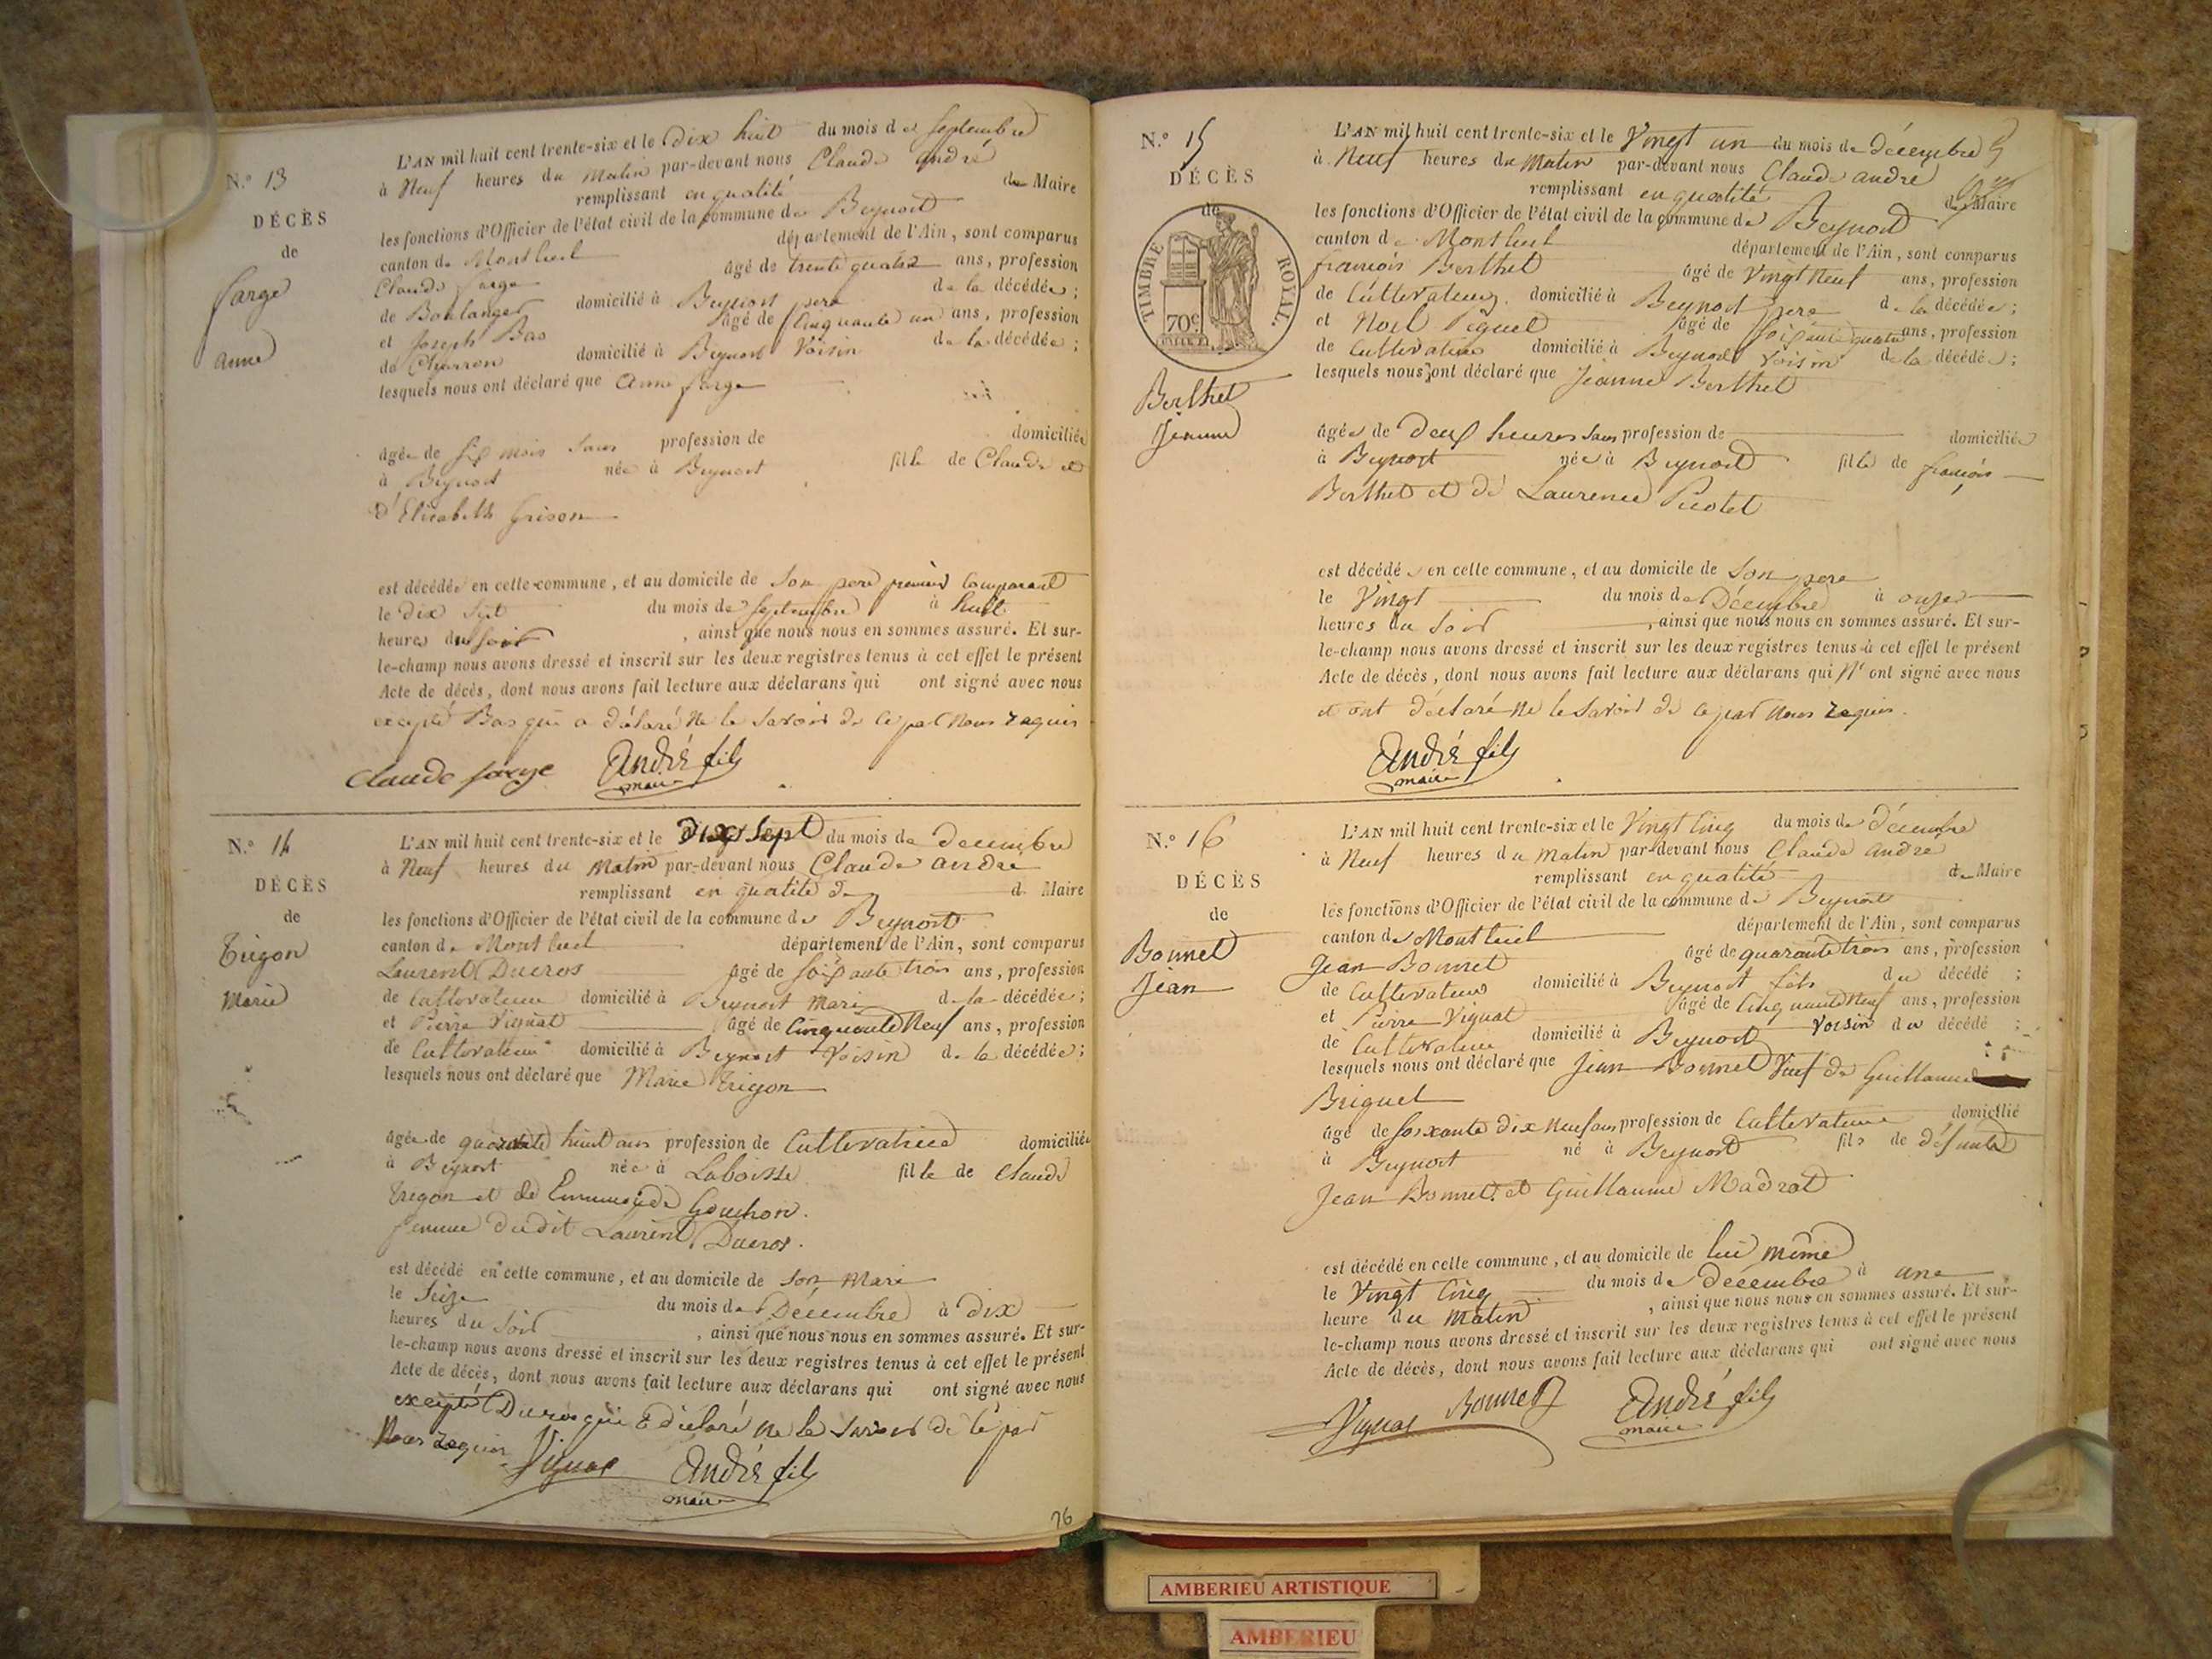 N.° 13
DÉCÈS
de
farge
anne
L'AN mil huit cent trente-six et le dix huit du mois de septembre
à Neuf heures du Matin par-devant nous Claude andré
remplissant en qualité de Maire
les fonctions d'Officier de l'état civil de la commune de Beynost
canton de Montluel département de l'Ain, sont comparus
Claude farge âgé de trente quatre ans, profession
de Boulanger domicilié à Beynost pere de la décédée;
et Joseph Bas âgé de Cinquante un ans, profession
de Charron domicilié à Beynost Voisin de la décédée;
lesquels nous ont déclaré que Anne farge
âgée de six mois Sans profession de domiciliée
à Beynost née à Beynost fille de Claude et
d'Elisabeth grison
est décédée en cette commune, et au domicile de Son pere premier Comparant
le dix sept du mois de septembre à huit
heures du soir, ainsi que nous nous en sommes assuré. Et sur-
le-champ nous avons dressé et inscrit sur les deux registres tenus à cet effet le présent
Acte de décès, dont nous avons fait lecture aux déclarans qui ont signé avec nous
excepté Bas qui a déclaré ne le Savoir de ce par Nous requis
Claude farge André fils
maire
N.° 14
DÉCÈS
de
Trigon
Marie
L'AN mil huit cent trente-six et le dix sept du mois de decembre
à Neuf heures du Matin par-devant nous Claude andré
remplissant en qualité de d Maire
les fonctions d'Officier de l'état civil de la commune de Beynost
canton de Montluel département de l'Ain, sont comparus
Laurent Ducros âgé de soixante trois ans, profession
de Cultivateur domicilié à Beynost Mari de la décédée;
et Pierre Vignat âgé de Cinquante Neuf ans, profession
de Cultivateur domicilié à Beynost Voisin de la décédée;
lesquels nous ont déclaré que Marie Trigon
âgée de quarante huit ans profession de Cultivatrice domiciliée
à Beynost née à Laboisse fille de Claude
Trigon et de Gouchon.
femme dudit Laurent Ducros.
est décédé en cette commune, et au domicile de Son Mari
le Seize du mois de Décembre à Dix
heures du Soir, ainsi que nous nous en sommes assuré. Et sur-
le-champ nous avons dressé et inscrit sur les deux registres tenus à cet effet le présent
Acte de décès, dont nous avons fait lecture aux déclarans qui ont signé avec nous
excepté Ducros qui a déclaré ne le Savoir de ce par
Nous requis Vignat André fils
maire
76
N.° 15
DÉCÈS
de
TIMBRE ROYAL.
70c
Berthet
Jeanne
L'AN mil huit cent trente-six et le Vingt un du mois de décembre
à Neuf heures du Matin par-devant nous Claude andré
remplissant en qualité de Maire
les fonctions d'Officier de l'état civil de la commune de Beynost
canton de Montluel département de l'Ain, sont comparus
françois Berthet âgé de Vingt Neuf ans, profession
de Cultivateur domicilié à Beynost pere de la décédée;
et Noel Piquet âgé de soixante quatre ans, profession
de Cultivateur domicilié à Beynost Voisin de la décédée;
lesquels nous ont déclaré que Jeanne Berthet
âgée de Deux heures sans profession de domiciliée
à Beynost née à Beynost fille de françois
Berthet et de Laurence Picotet
est décédée en cette commune, et au domicile de Son pere
le Vingt du mois de Décembre à onze
heures du Soir, ainsi que nous nous en sommes assuré. Et sur-
le-champ nous avons dressé et inscrit sur les deux registres tenus à cet effet le présent
Acte de décès, dont nous avons fait lecture aux déclarans qui N'ont signé avec nous
et ont déclaré ne le Savoir de ce par Nous requis.
André fils
maire
N.° 16
DÉCÈS
de
Bonnet
Jean
L'AN mil huit cent trente-six et le Vingt Cinq du mois de décembre
à Neuf heures du Matin par-devant nous Claude andré
remplissant en qualité de Maire
les fonctions d'Officier de l'état civil de la commune de Beynost
canton de Montluel département de l'Ain, sont comparus
Jean Bonnet âgé de quarante trois ans, profession
de Cultivateur domicilié à Beynost fils du décédé ;
et Pierre Vignat âgé de Cinquante Neuf ans, profession
de Cultivateur domicilié à Beynost Voisin du décédé ;
lesquels nous ont déclaré que Jean Bonnet Veuf de Guillaume
Briquet
âgé de soixante dix neuf ans profession de Cultivateur domicilié
à Beynost né à Beynost fils de défunts
Jean Bonnet et Guillaume Madrat
est décédé en cette commune, et au domicile de lui même
le Vingt Cinq du mois de décembre à une
heure du Matin, ainsi que nous nous en sommes assuré. Et sur-
le-champ nous avons dressé et inscrit sur les deux registres tenus à cet effet le présent
Acte de décès, dont nous avons fait lecture aux déclarans qui ont signé avec nous
Vignat Bonnet André fils
maire
AMBERIEU ARTISTIQUE
AMBERIEU